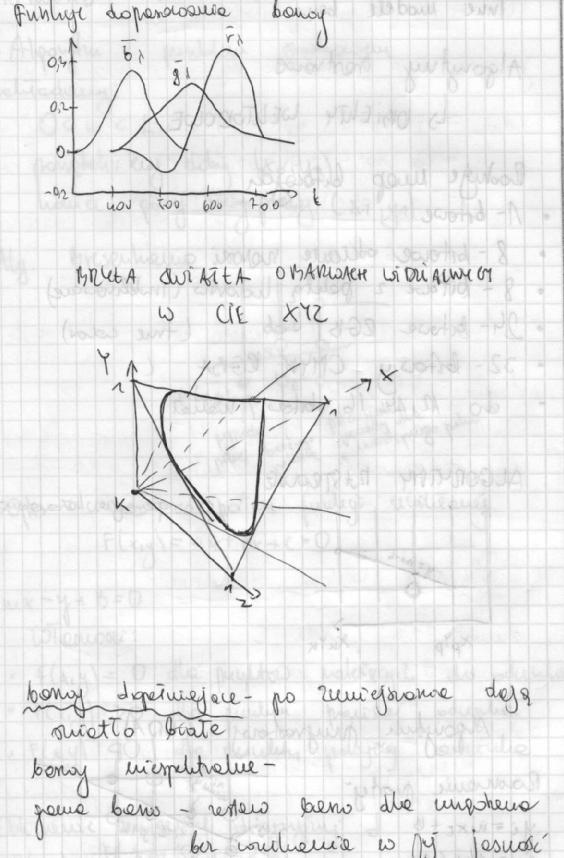 Funkcje dopasowania barwy
b̄λ
ḡλ
r̄λ
0,4
0,2
0
-0,2
400 500 600 700 t
BRYŁA ŚWIATŁA O BARWACH WIDZIALNYCH
W CIE XYZ
Y
1
X
1
K
1
Z
barwy dopełniające - po zmieszaniu dają
światło białe
barwy niespektralne -
gama barw - zestaw barw dla
bez wnikania w jej jasność